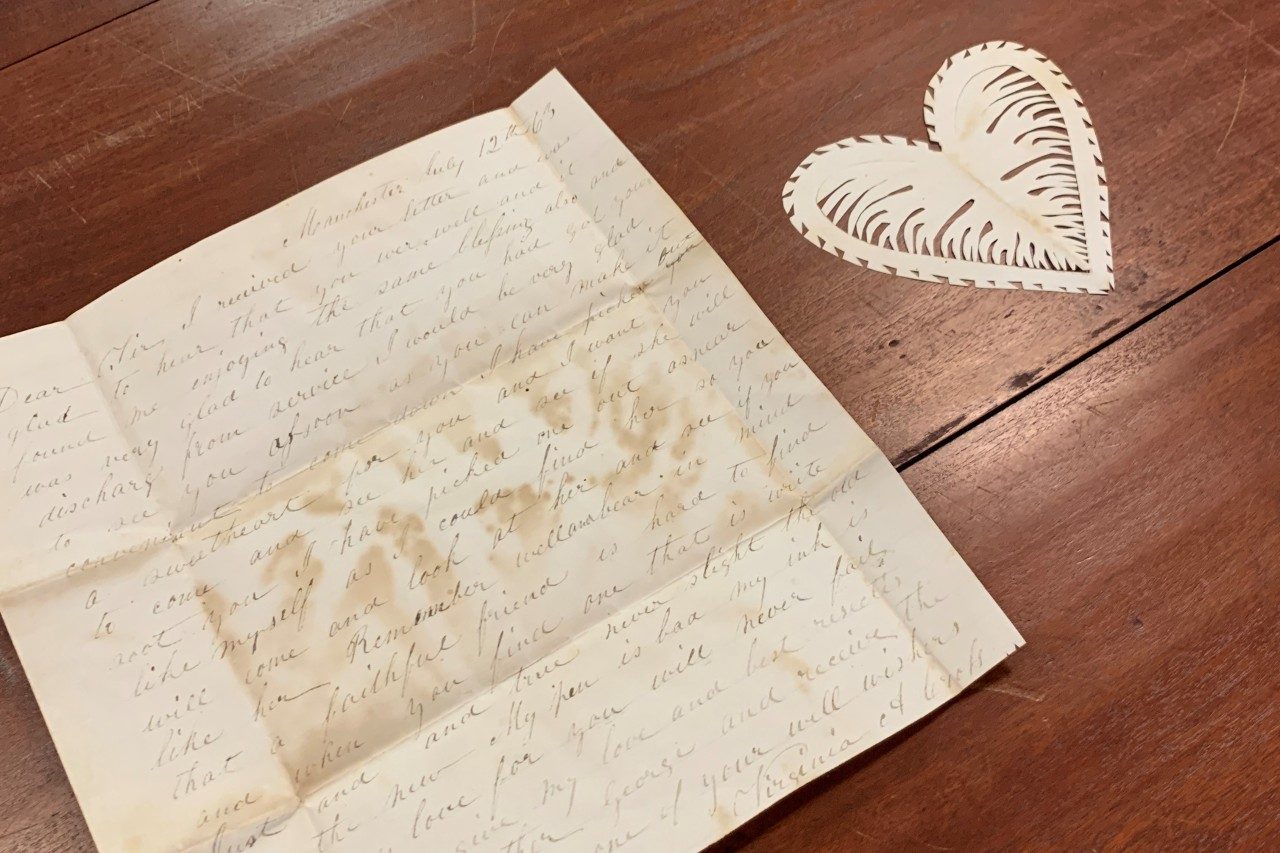 Manchester July 12th 63
Dear Sir I received your letter and was
glad to hear that you wer well and it
found me enjoying the same blessing also and
was very glad to hear that you had got your
discharg from service I would be very glad
to see you assoon as you can make it
convenient to come down I have picked out
a sweetheart for you and I want you
to come and see her and see if she will
soot you I have picked one out asnear
like myself as I could find her so you
will come and look at her and see if you
like her Remember wellan bear in mind
that a faithful friend is hard to find
and when you find one that is write
Just and true never slight the old
the new My pen is bad my ink is
love for you will never fail
give my love and best respects
George and receive the
one of your well wishers
Virginia A